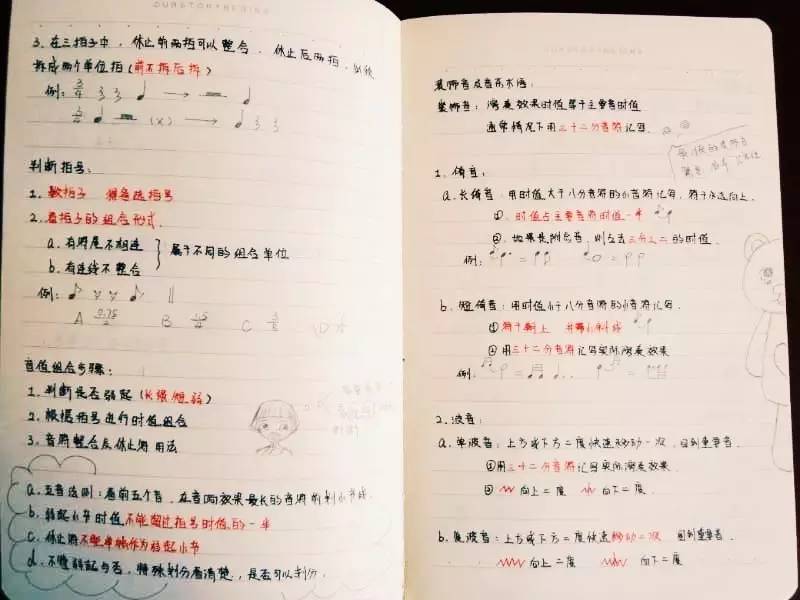 3. 在三拍子中，休止前两拍可以整合，休止后两拍，必须
拆成两个单位拍（前不拆后拆）
例：3/4
3/4 (X)
判断拍号：
1. 数拍子 得备选拍号
2. 看拍子的组合形式.
a. 有符尾不相连
b. 有连线不整合
属于不同的组合单位
例：
A B C D
音值组合步骤：
1. 判断是否弱起（长 短 弱）
2. 根据拍号进行时值组合
3. 音符整合及休止符用法
a. 五音法则：看前五个音，在音响效果最长的音符前划小节线.
b. 弱起小节时值不能超过拍号时值的一半
c. 休止符不能单独作为弱起小节
d. 不管弱起与否，特殊划分看清楚，是否可以划分.
装饰音及音乐术语：
装饰音：演奏效果时值等于主要音时值
通常情况下用三十二分音符记写.
1. 倚音：
a. 长倚音：用时值大于八分音符的小音符记写，符干永远向上.
①. 时值占主要音符时值一半
②. 如果是附点音，则占去三分之二的时值.
例：
b. 短倚音：用时值小于八分音符的小音符记写.
①符干朝上 并带小斜线
②用三十二分音符记写实际演奏效果
例：
2. 波音：
a. 单波音：上方或下方二度快速移动一次，回到重要音.
①用三十二分音符记写实际演奏效果.
② 向上二度 向下二度.
b. 复波音：上方或下方二度快速移动二次 回到重要音.
向上二度 向下二度